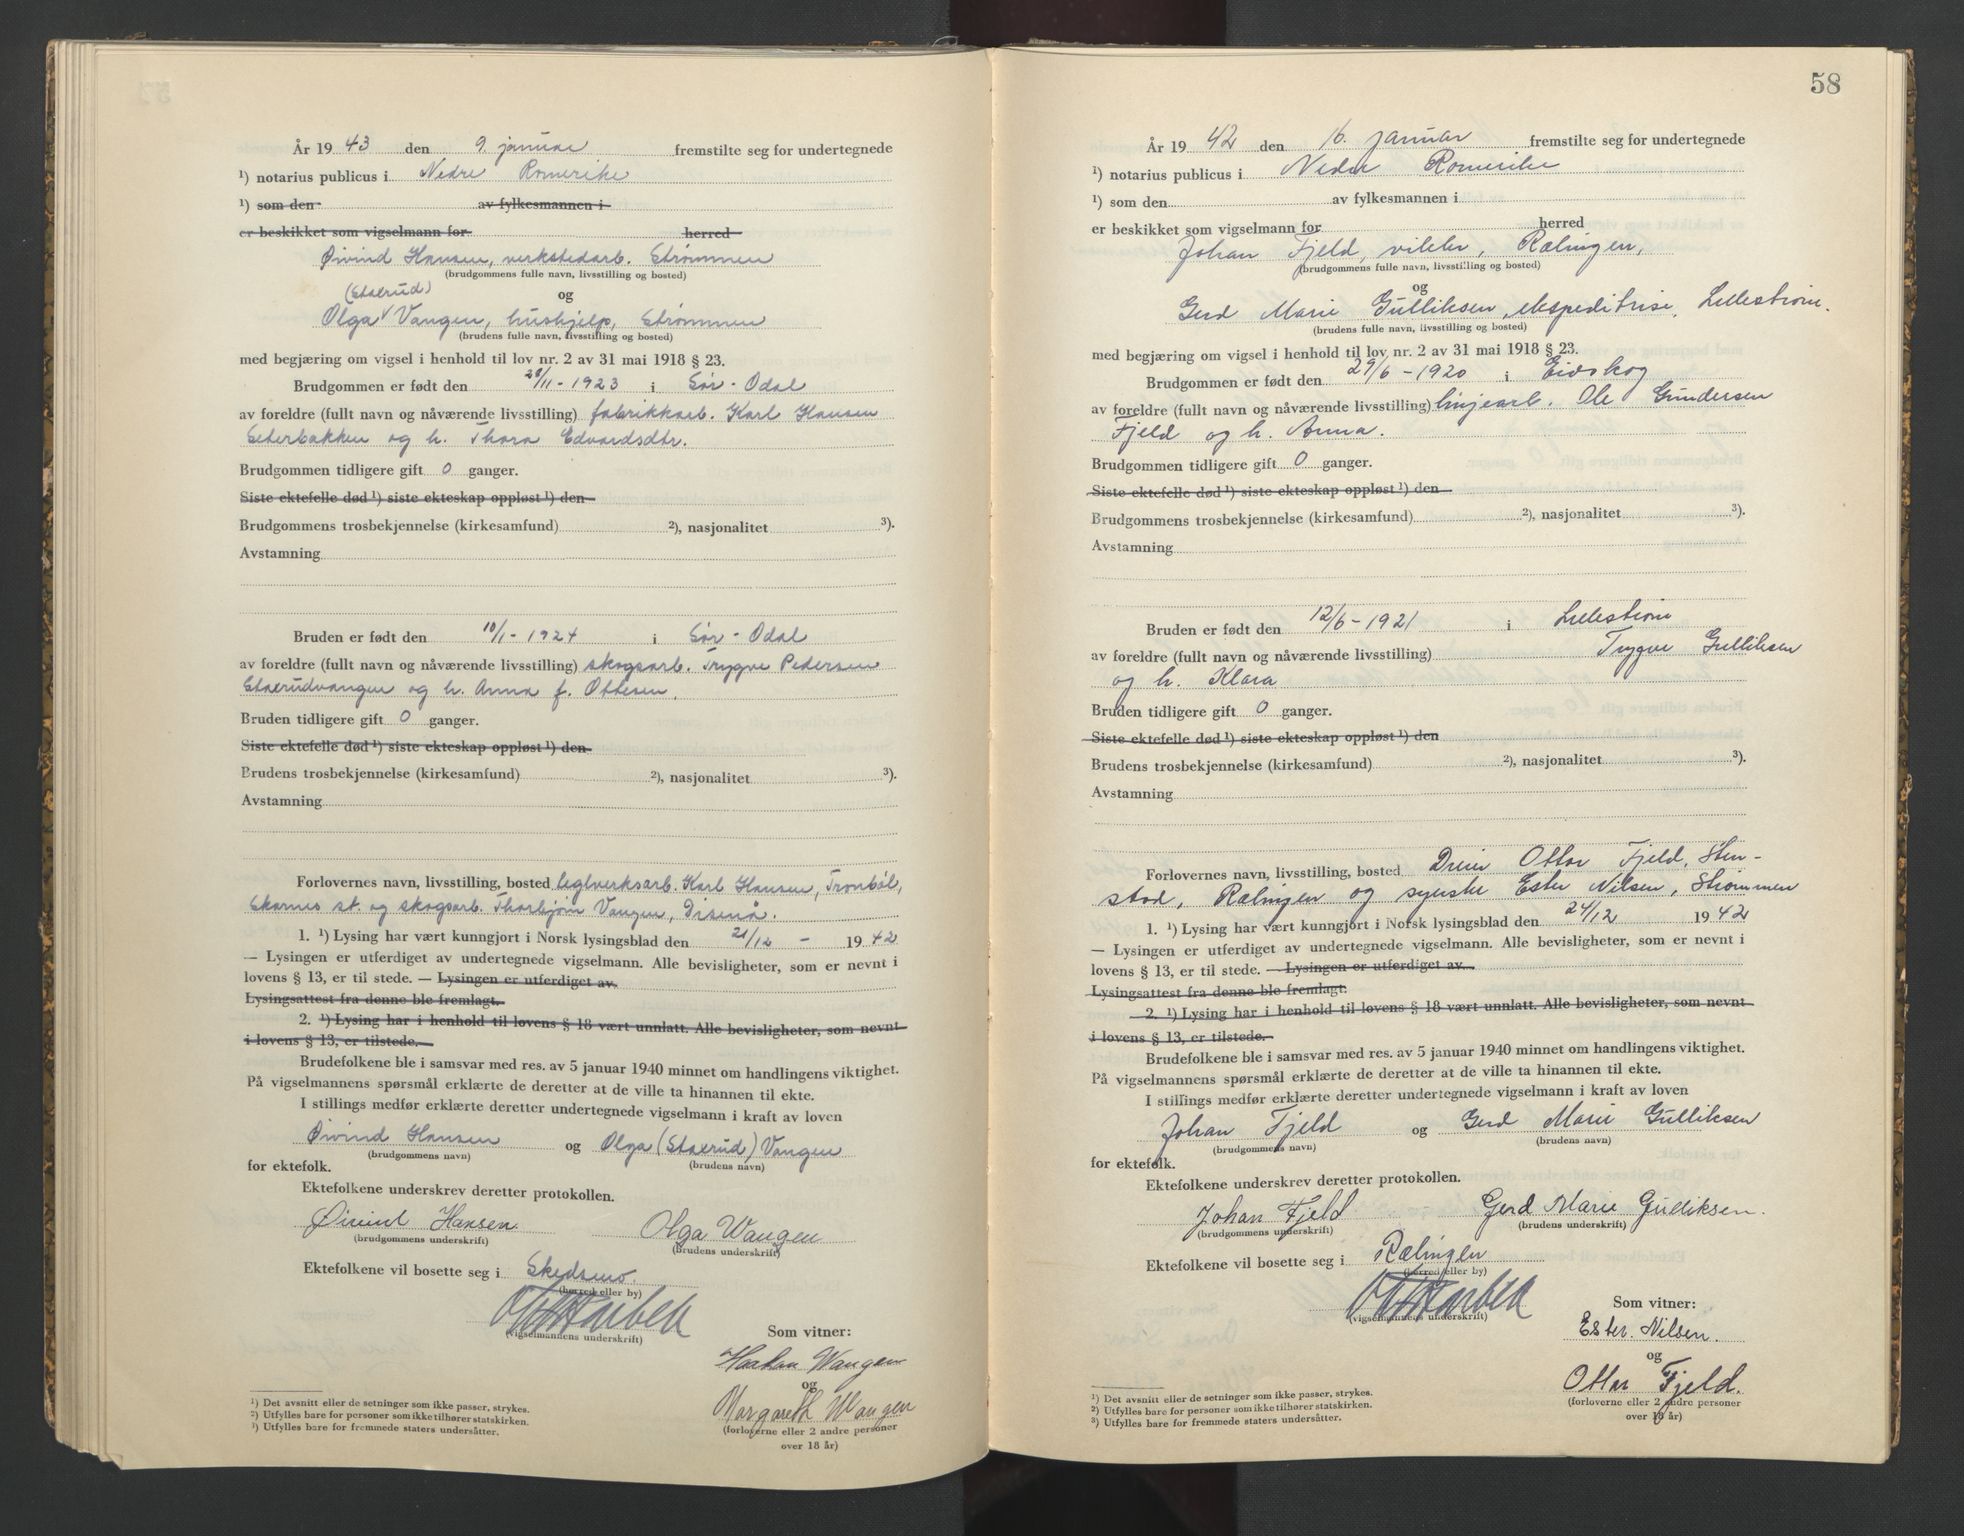 År 19 43 den 9. januar fremstilte seg for undertegnede
¹) notarius publicus i Nedre Romerike
¹) som den av fylkesmannen i
er beskikket som vigselmann for herred
Øivind Hansen, verkstedarb. Strømmen
(brudgommens fulle navn, livsstilling og bosted)
(Staerud) og
Olga √ Vangen, hushjelp, Strømmen
(brudens fulle navn, livsstilling og bosted)
med begjæring om vigsel i henhold til lov nr. 2 av 31 mai 1918 § 23.
Brudgommen er født den 28/11 - 1923 i Sør-Odal
av foreldre (fullt navn og nåværende livsstilling) fabrikkarb. Karl Hansen
Seterbakken og h. Thora Edvardsdtr.
Brudgommen tidligere gift 0 ganger.
Siste ektefelle død ¹) siste ekteskap oppløst ¹) den
Brudgommens trosbekjennelse (kirkesamfund) ²), nasjonalitet ³).
Avstamning
Bruden er født den 10/1 - 1924 i Sør-Odal
av foreldre (fullt navn og nåværende livsstilling) skogsarb. Trygve Pedersen
Staerudvangen og h. Anna f. Ottesen.
Bruden tidligere gift 0 ganger.
Siste ektefelle død ¹) siste ekteskap oppløst ¹) den
Brudens trosbekjennelse (kirkesamfund) ²), nasjonalitet ³).
Avstamning
Forlovernes navn, livsstilling, bosted teglverksarb. Karl Hansen, Tronbøl,
Skarnes st. og skogsarb. Thorbjørn Vangen, Disenå.
1. ¹) Lysing har vært kunngjort i Norsk lysingsblad den 21/12 - 19 42
— Lysingen er utferdiget av undertegnede vigselmann. Alle bevisligheter, som er nevnt i
lovens § 13, er til stede. — Lysingen er utferdiget av
Lysingsattest fra denne ble fremlagt.
2. ¹) Lysing har i henhold til lovens § 18 vært unnlatt. Alle bevisligheter, som nevnt
i lovens § 13, er tilstede.
Brudefolkene ble i samsvar med res. av 5 januar 1940 minnet om handlingens viktighet.
På vigselmannens spørsmål erklærte de deretter at de ville ta hinannen til ekte.
I stillings medfør erklærte deretter undertegnede vigselmann i kraft av loven
Øivind Hansen og Olga (Staerud) Vangen
(brudgommens navn) (brudens navn)
for ektefolk.
Ektefolkene underskrev deretter protokollen.
Øivind Hansen Olga Wangen
(brudgommens underskrift) (Brudens underskrift)
Ektefolkene vil bosette seg i Skedsmo.
(herred eller by)
(vigselmannens underskrift)
Som vitner:
Haakon Wangen
og
Margareth Wangen
(forloverne eller 2 andre personer
over 18 år)
¹) Det avsnitt eller de setninger som ikke passer, strykes.
²) Utfylles bare for personer som ikke tilhører statskirken.
³) Utfylles bare for fremmede staters undersåtter.
58
År 19 42 den 16. januar fremstilte seg for undertegnede
¹) notarius publicus i Nedre Romerike
¹) som den av fylkesmannen i
er beskikket som vigselmann for herred
Johan Fjeld, Rælingen,
(brudgommens fulle navn, livsstilling og bosted)
og
Gerd Marie Gulliksen, ekspeditrise, Lillestrøm.
(brudens fulle navn, livsstilling og bosted)
med begjæring om vigsel i henhold til lov nr. 2 av 31 mai 1918 § 23.
Brudgommen er født den 29/6 - 1920 i Eidskog
av foreldre (fullt navn og nåværende livsstilling) linjearb. Ole Gundersen
Fjeld og h. Anna.
Brudgommen tidligere gift 0 ganger.
Siste ektefelle død ¹) siste ekteskap oppløst ¹) den
Brudgommens trosbekjennelse (kirkesamfund) ²), nasjonalitet ³).
Avstamning
Bruden er født den 12/6 - 1921 i Lillestrøm
av foreldre (fullt navn og nåværende livsstilling) Trygve Gulliksen
og h. Klara
Bruden tidligere gift 0 ganger.
Siste ektefelle død ¹) siste ekteskap oppløst ¹) den
Brudens trosbekjennelse (kirkesamfund) ²), nasjonalitet ³).
Avstamning
Forlovernes navn, livsstilling, bosted Dreier Ottar Fjeld, Sten-
stad, Rælingen og syerske Ester Nilsen, Strømmen
1. ¹) Lysing har vært kunngjort i Norsk lysingsblad den 24/12 19 42
— Lysingen er utferdiget av undertegnede vigselmann. Alle bevisligheter, som er nevnt i
lovens § 13, er til stede. — Lysingen er utferdiget av
Lysingsattest fra denne ble fremlagt.
2. ¹) Lysing har i henhold til lovens § 18 vært unnlatt. Alle bevisligheter, som nevnt
i lovens § 13, er tilstede.
Brudefolkene ble i samsvar med res. av 5 januar 1940 minnet om handlingens viktighet.
På vigselmannens spørsmål erklærte de deretter at de ville ta hinannen til ekte.
I stillings medfør erklærte deretter undertegnede vigselmann i kraft av loven
Johan Fjeld og Gerd Marie Gulliksen
(brudgommens navn) (brudens navn)
for ektefolk.
Ektefolkene underskrev deretter protokollen.
Johan Fjeld Gerd Marie Gulliksen.
(brudgommens underskrift) (brudens underskrift)
Ektefolkene vil bosette seg i Rælingen
(herred eller by)
(vigselmannens underskrift)
Som vitner:
Ester. Nilsen.
og
Ottar Fjeld.
(forloverne eller 2 andre personer
over 18 år)
¹) Det avsnitt eller de setninger som ikke passer, strykes.
²) Utfylles bare for personer som ikke tilhører statskirken.
³) Utfylles bare for fremmede staters undersåtter.